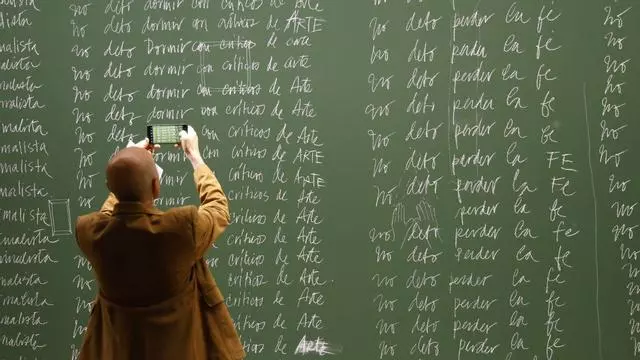 no debo dormir con críticos de ARTE
no debo Dormir con critico de arte
no debo dormir con críticos de Arte
no debo dormir con críticos de Arte
no debo dormir con críticos de Arte
no debo críticos de Arte
no críticos de ARTE
no críticos de ARTE
no críticos de Arte
no críticos de Arte
no críticos de Arte
no críticos de Arte
no críticos de Arte
no críticos de Arte
no críticos de Arte
no críticos de Arte
no debo perder la fe
no debo perder la fe
no debo perder la fe
no debo perder la fe
no debo perder la fe
no debo perder la FE
no debo perder la fe
no debo perder la fe
no debo perder la fe
no debo perder la fe
no debo perder la fe
no debo perder la fe
no debo perder la fe
no debo perder la fe
no
no
no
no
no
no
no
no
no
no
no
no
no